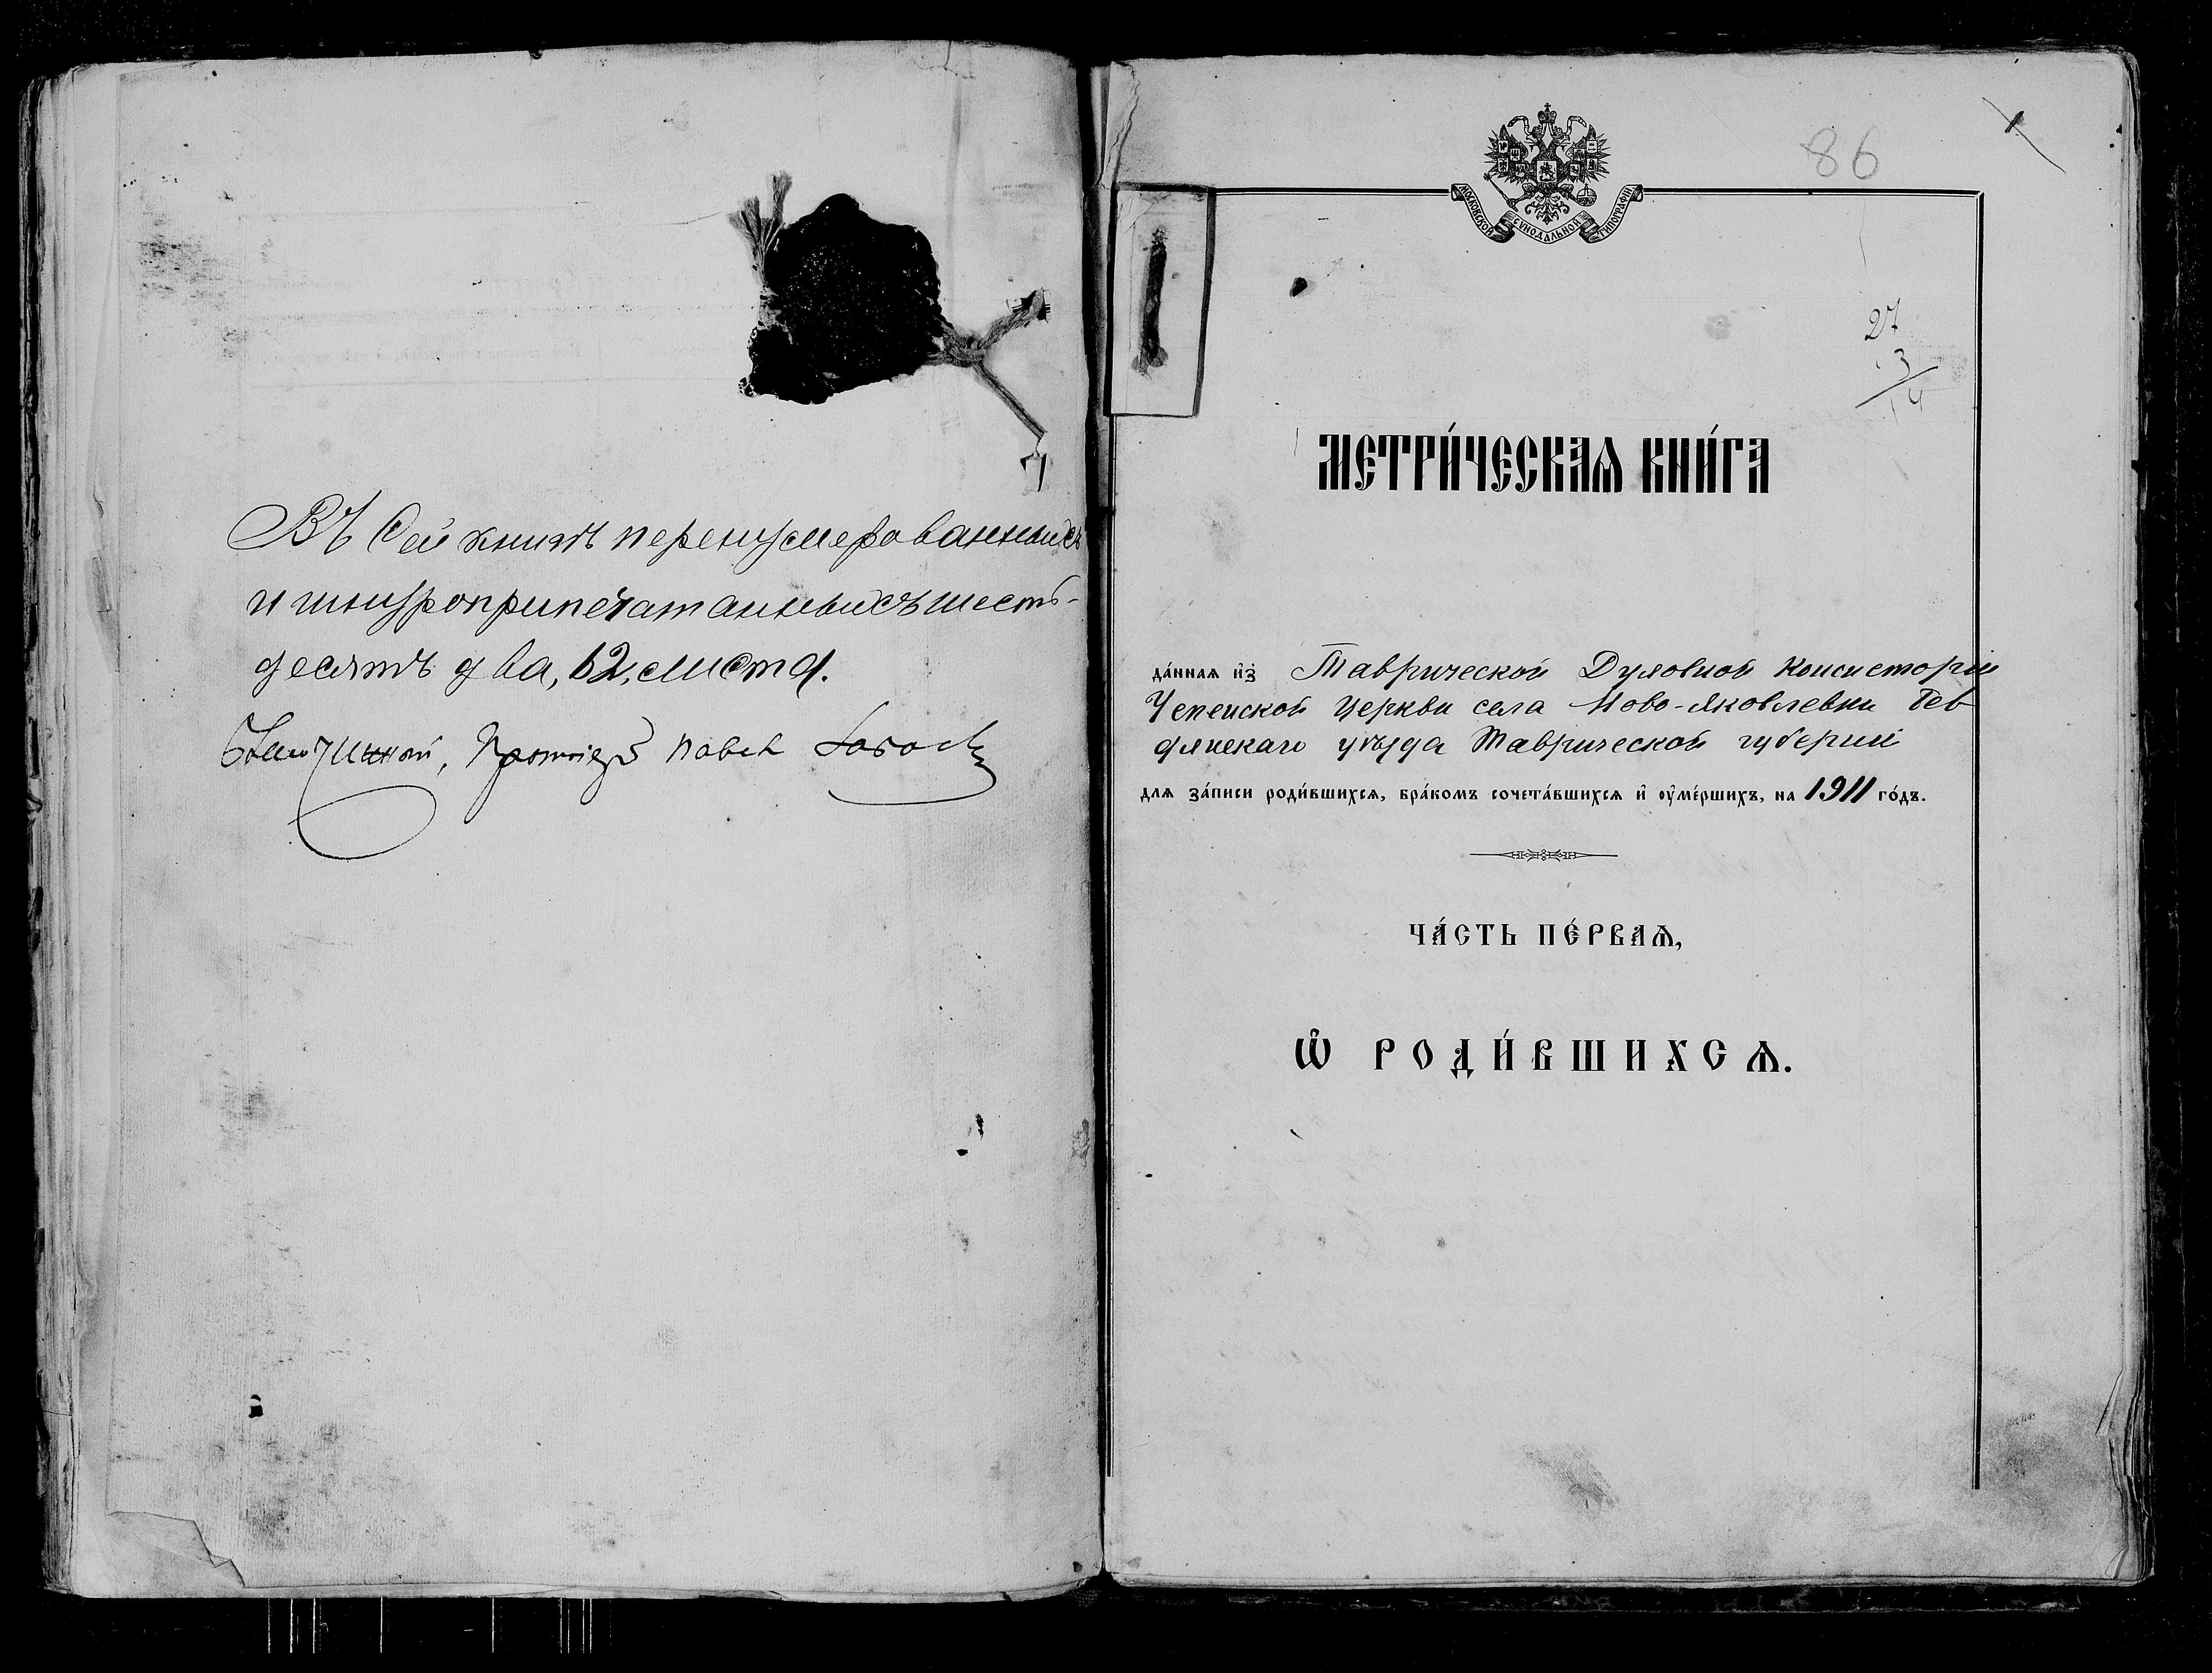 Въ сей книгѣ перенумерованныхъ
и шнуроприпечатанныхъ шесть-
десятъ два, 62, листа.
Павел
86
1
МОСКОВСКОЙ СѴНОДАЛЬНОЙ ТИПОГРАФІИ
27
3
14
МЕТРИ́ЧЕСКАѦ КНИ́ГА
да́ннаѧ и҆з̾ Таврической Духовной Консисторіи
Церкви села Ново-Яковлевки Бер
дянскаго уѣзда Таврической губерніи
для за́писи роди́вшихсѧ, бра́комъ сочета́вшихсѧ и҆ оу҆ме́ршихъ, на 1911 го́дъ.
ЧА́СТЬ ПЕ́РВАѦ,
Ѽ РОДИ́ВШИХСѦ.